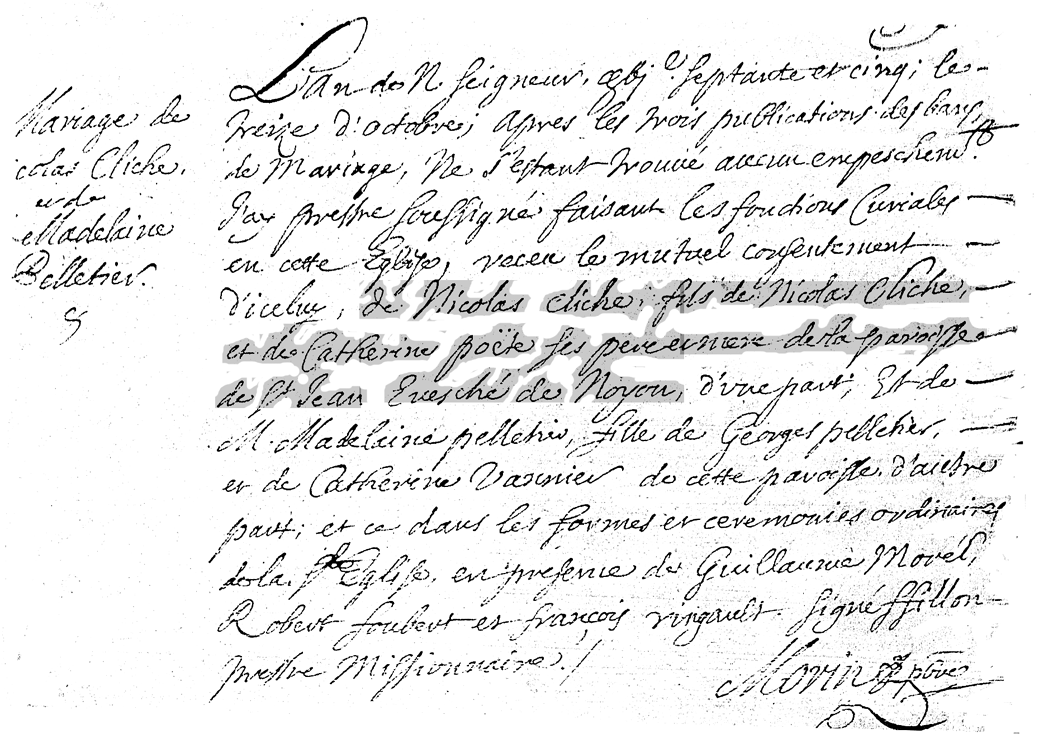 Mariage de
colas Cliche.
et de
Madelaine
Pelletier.
L'an de N. Seigneur, septante et cinq; le
treize d'octobre; apres les trois publications des bans
de Mariage, Ne s'estant trouvé aucun empeschem.t
J'ay prestre soussigné faisant les fonctions Curiales
en cette Eglise, receu le mutuel consentement
d'iceluy, de Nicolas cliche, fils de Nicolas Cliche,
et de Catherine poëte ses pere et mere de la paroisse
de St Jean Evesché de Noyon, d'une part; Et de
M. Madelaine pelletier, fille de Georges pelletier,
et de Catherine Vannier de cette paroisse d'autre
part; et ce dans les formes et ceremonies ordinaires
de la Ste Eglise, en presence de Guillaume Morel,
Robert foubert et françois ringault. signé ffillon
prestre Missionnaire./
Morin ptre